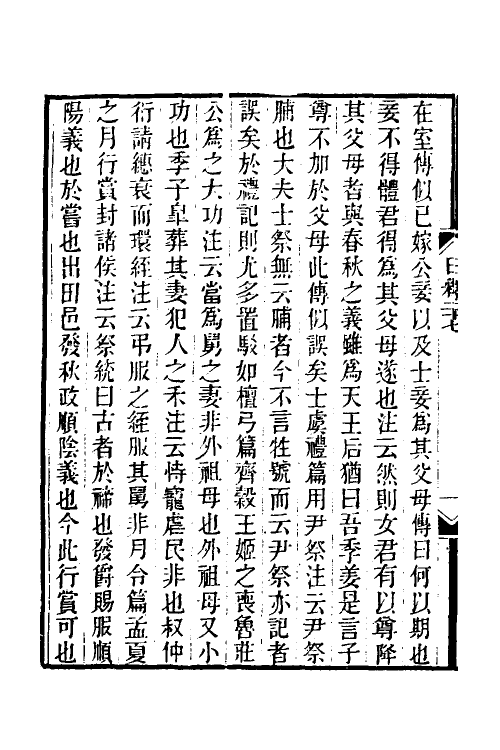 在室傳似已嫁公妾以及士妾為其父母傳曰何以期也
妾不得體君得為其父母遂也注云然則女君有以尊降
其父母者與春秋之義雖為天王后猶曰吾季姜是言子
尊不加於父母此傳似誤矣士虞禮篇用尹祭注云尹祭
脯也大夫士祭無云脯者今不言牲號而云尹祭亦記者
誤矣於禮記則尤多置駁如檀弓篇齊穀王姬之喪魯莊
公為之大功注云當為舅之妻非外祖母也外祖母又小
功也季子臯葬其妻犯人之禾注云恃寵虐民非也叔仲
衍請繐衰而環絰注云弔服之絰服其舅非月令篇孟夏
之月行賞封諸侯注云祭統曰古者於禘也發爵賜服順
陽義也於嘗也出田邑發秋政順陰義也今此行賞可也